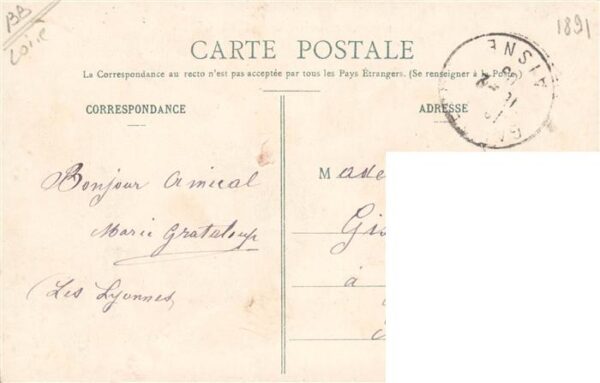 BB
Loire
1891
CARTE POSTALE
La Correspondance au recto n'est pas acceptée par tous les Pays Étrangers. (Se renseigner à la Poste)
CORRESPONDANCE
ADRESSE
AISNE
Bonjour amical
Marie Grataloup
Les Lyonnes
M
Gis
à